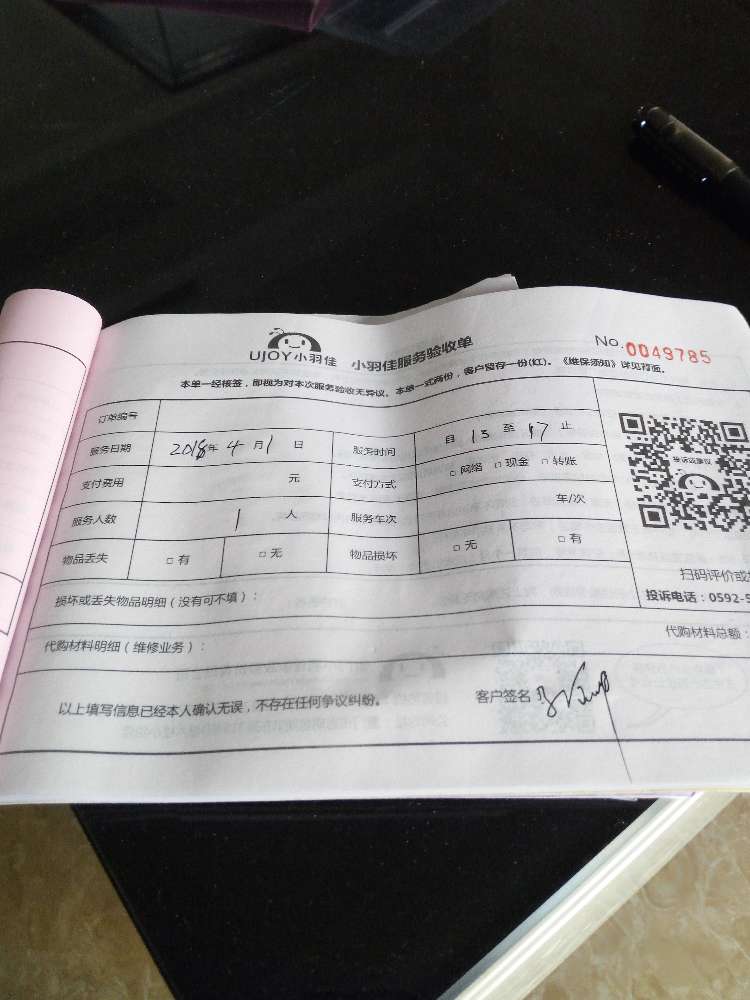 UJOY小羽佳 小羽佳服务验收单 No.0049785
本单一经核签，即视为对本次服务验收无异议。本单一式两份，客户留存一份(红)。《维保须知》详见背面。
订单编号
服务日期 2018年 4月1日 服务时间 自 13 至 17 止
支付费用 元 支付方式 □ 网络 □ 现金 □ 转账
服务人数 1 人 服务车次 车/次
物品丢失 □ 有 □ 无 物品损坏 □ 无 □ 有
投诉或建议
扫码评价或
投诉电话：0592-5
损坏或丢失物品明细（没有可不填）：
代购材料明细（维修业务）： 代购材料总额：
以上填写信息已经本人确认无误，不存在任何争议纠纷。 客户签名